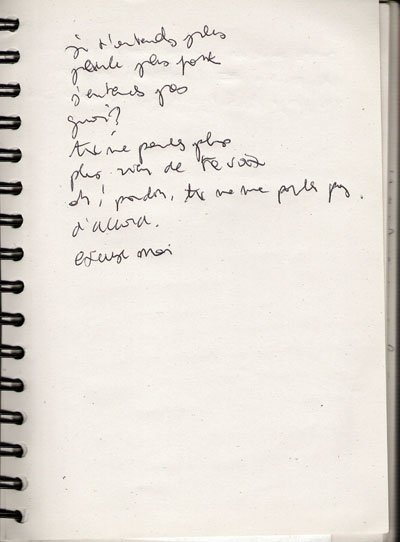 je t'entends plus
parle plus fort
j'entends pas
quoi?
tu me parles plus
plus rien de ta voix
ah! pardon, tu ne me parles pas.
d'accord.
excuse moi